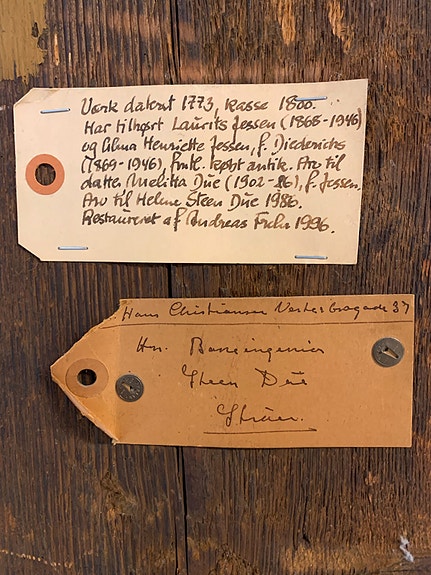 Værk dateret 1773, kasse 1800.
Har tilhørt Laurits Jessen (1865-1946)
og Alma Henriette Jessen, f. Diederichs
(1869-1946), fmtl. købt antik. Arv til
datter Melitta Due (1902-86), f. Jessen.
Arv til Helene Steen Due 1986.
Restaureret af Andreas 1996.
Hans Christiansen Vesterbrogade 37
Hr. Baneingeniør
Steen Due
Struer.